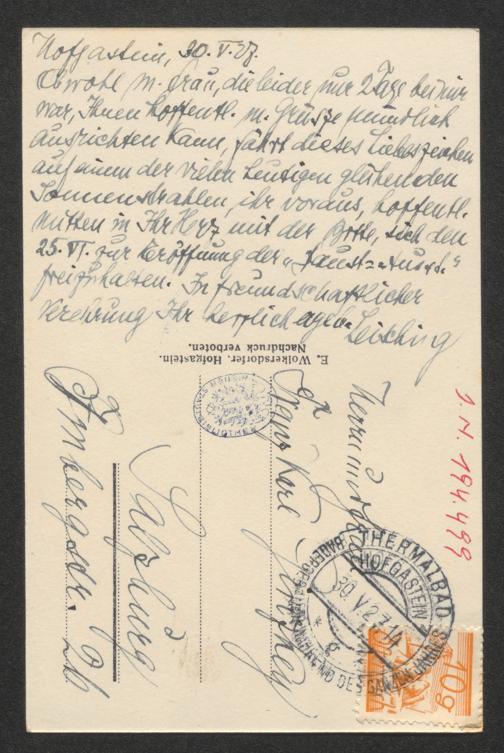 Hofgastein, 30. V. 27.
Obwohl m. Frau, die leider nur 2 Tage bei mir
war, Ihnen hoffentl. m. Grüsze mündlich
ausrichten kann, fährt dieses Liebeszeichen
auf einem der vielen heutigen glühenden
Sonnenstrahlen, ihr voraus, hoffentl.
mitten in Ihr Herz mit der Bitte, sich den
25. VI. zur Eröffnung der „Faust=Ausst."
freizuhalten. In freundschaftlicher
Verehrung Ihr herzlich ergeb. Leisching
E. Wolkersdorfer, Hofgastein.
Nachdruck verboten.
Herrn u.
Karl
Salzburg
Imbergstr.
I. N. 194.499
THERMALBAD
HOFGASTEIN
30 V 27 14
WÄHREND DES GANZEN JAHRES
10g